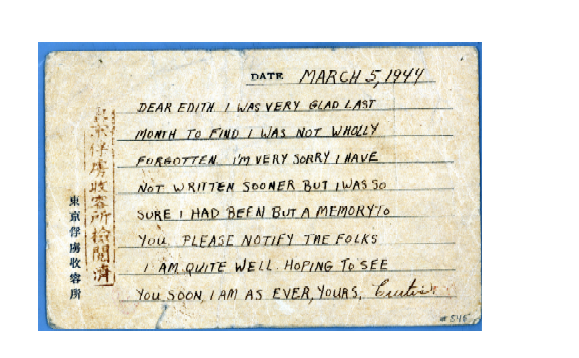 DATE MARCH 5, 1944
DEAR EDITH I WAS VERY GLAD LAST
MONTH TO FIND I WAS NOT WHOLLY
FORGOTTEN. I'M VERY SORRY I HAVE
NOT WRITTEN SOONER BUT I WAS SO
SURE I HAD BEEN BUT A MEMORY TO
YOU. PLEASE NOTIFY THE FOLKS
I AM QUITE WELL. HOPING TO SEE
YOU SOON, I AM AS EVER, YOURS, Curtis
東京俘虜收容所檢閱濟
東京俘虜收容所